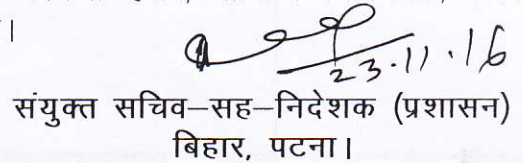 ।
23.11.16
संयुक्त सचिव–सह–निदेशक (प्रशासन)
बिहार, पटना।